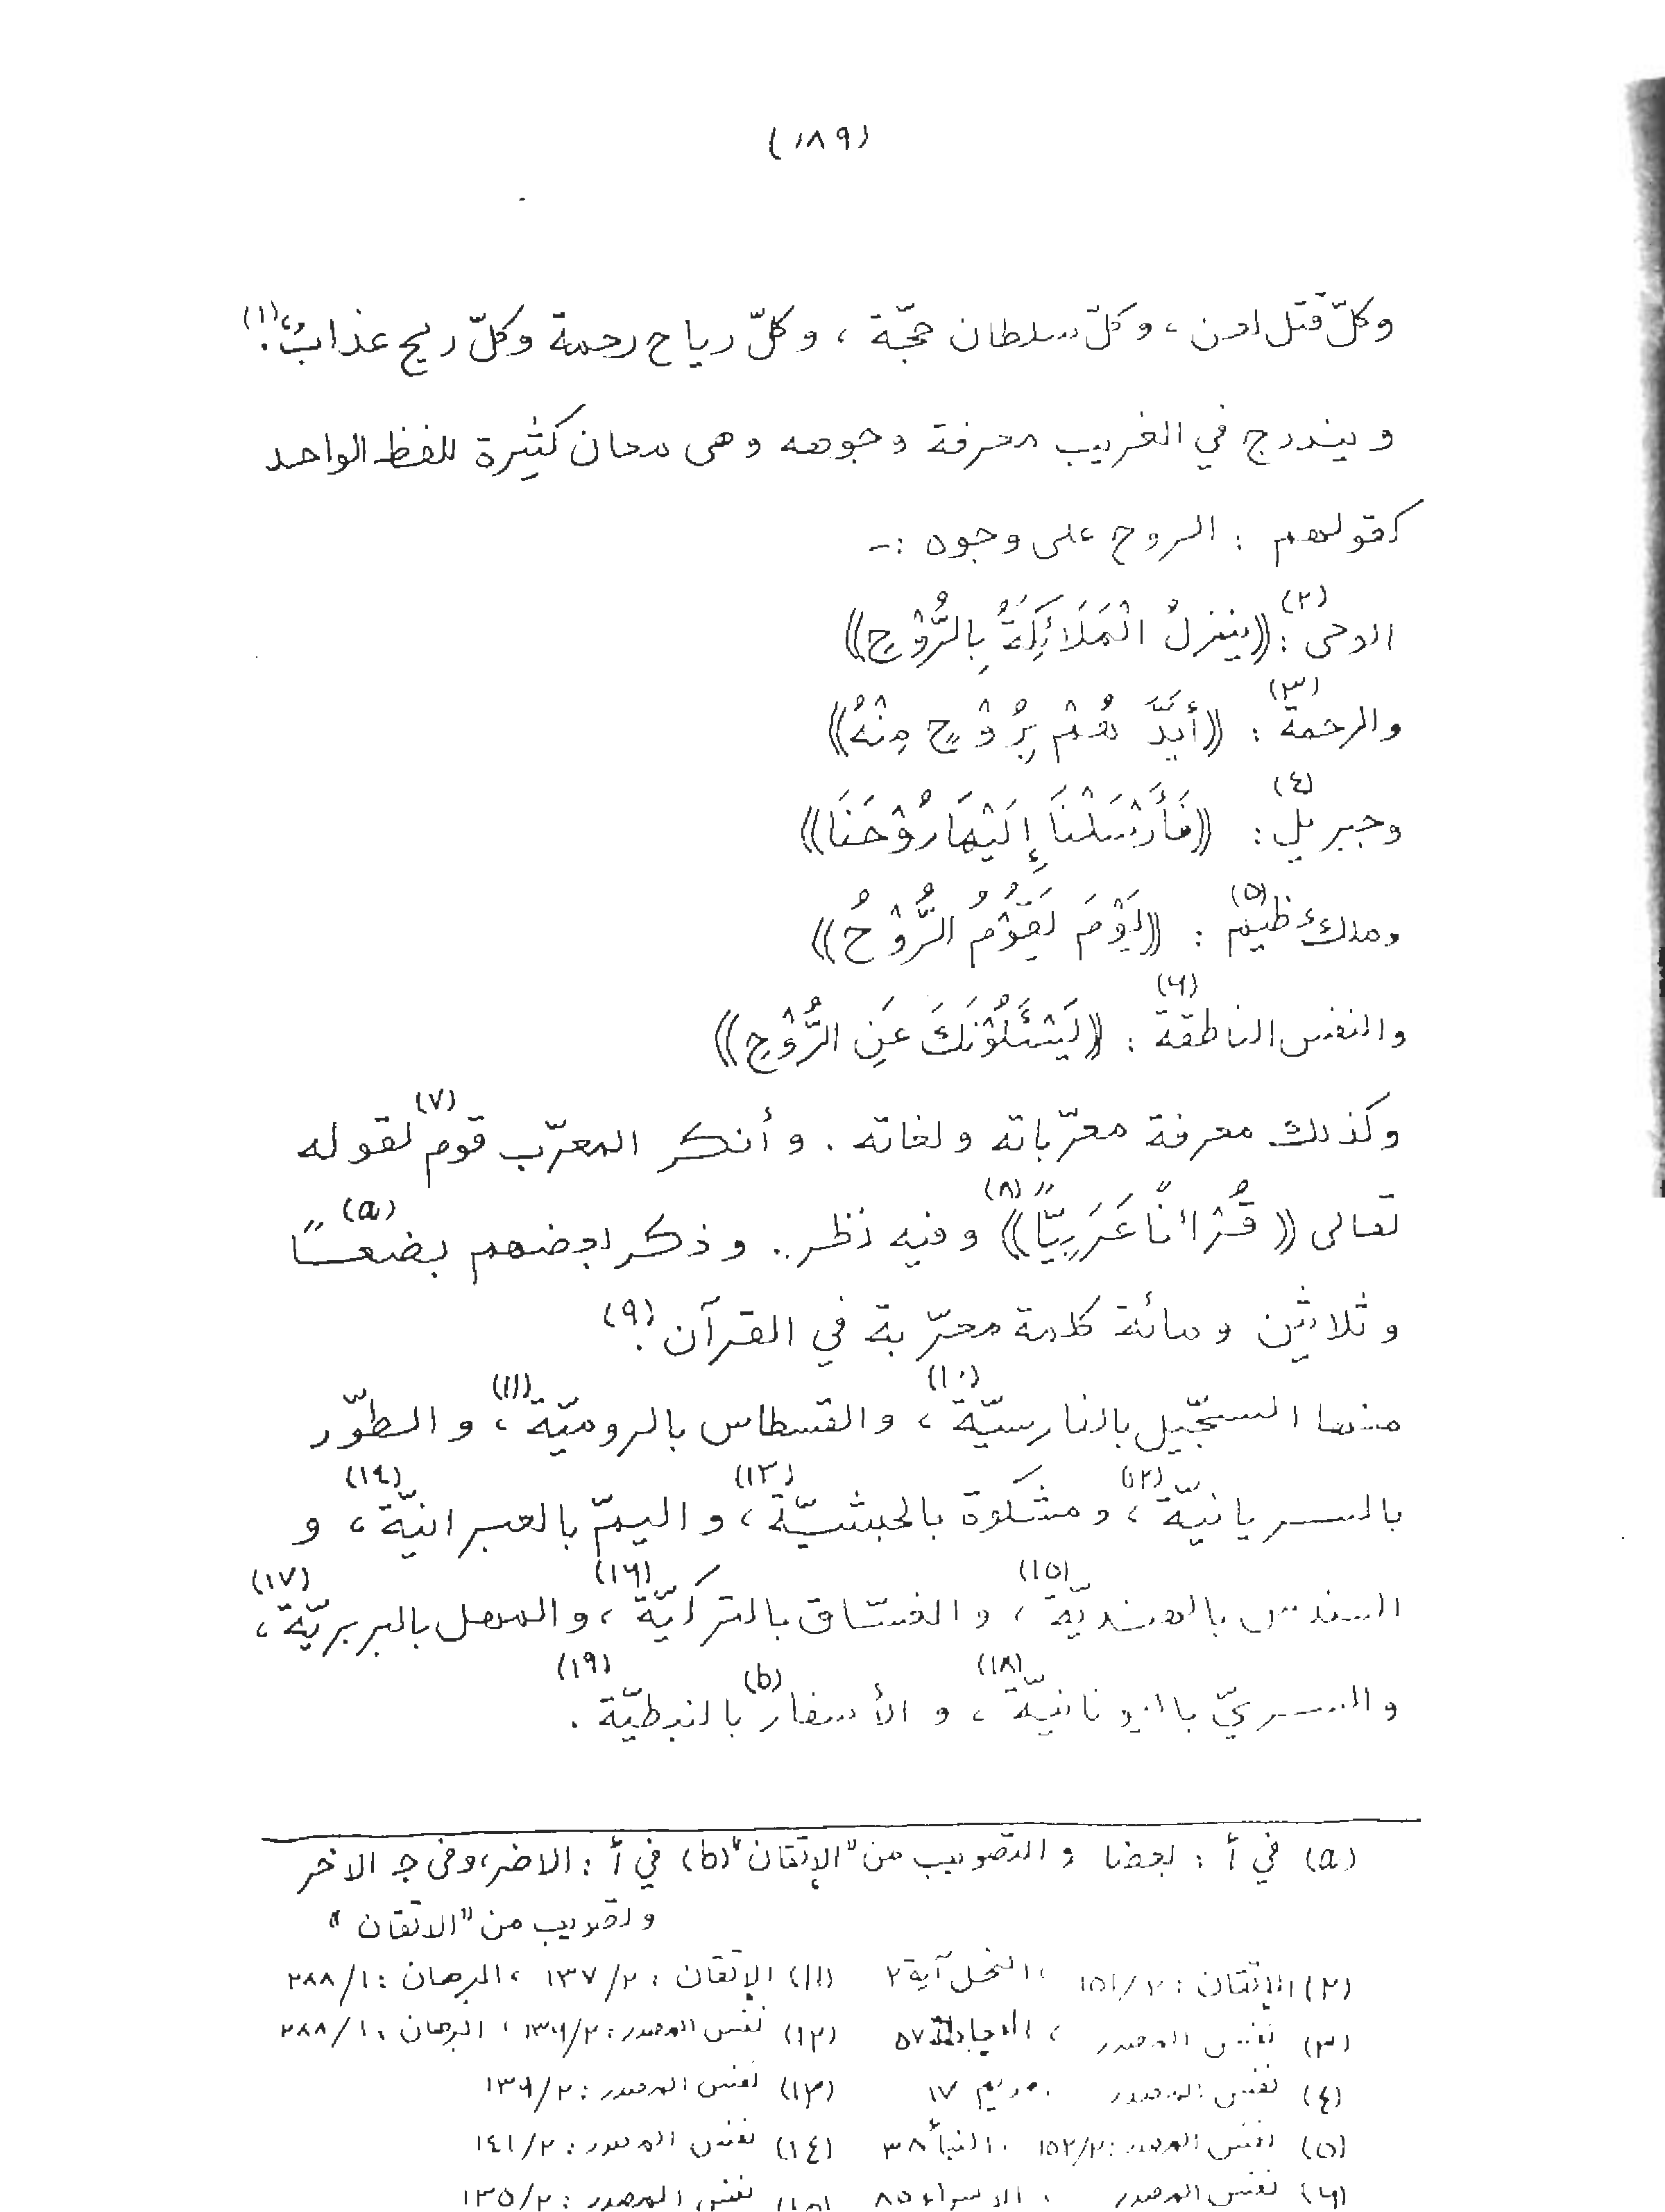 (١٨٩)
وكلّ قتل لعن ، وكلّ سلطان حجّة ، وكلّ رياح رحمة وكلّ ريح عذاب". (١)
ويندرج في الغريب معرفة وجوهه وهى معان كثيرة للفظ الواحد
كقولهم : الروح على وجوه :-
الوحى : ((يُنَزِّلُ الْمَلَائِكَةَ بِالرُّوْحِ)) (٢)
والرحمة : ((أَيَّدَهُمْ بِرُوْحٍ مِنْهُ)) (٣)
وجبريل : ((فَأَرْسَلْنَا إِلَيْهَا رُوْحَنَا)) (٤)
وملك عظيم : ((يَوْمَ يَقُوْمُ الرُّوْحُ)) (٥)
والنفس الناطقة : ((يَسْئَلُوْنَكَ عَنِ الرُّوْحِ)) (٦)
وكذلك معرفة معرّباته ولغاته . وأنكر المعرّب قوم (٧) لقوله
تعالى ((قُرْاٰنًا عَرَبِيًّا)) (٨) وفيه نظر . وذكر بعضهم بضعًا (a)
وثلاثين ومائة كلمة معرّبة في القرآن . (٩)
منها السجّيل بالفارسيّة (١٠) ، والقسطاس بالروميّة (١١) ، والطوّر
بالسريانيّة (١٢) ، ومشكوة بالحبشيّة (١٣) ، واليمّ بالعبرانيّة (١٤) ، و
السندس بالهنديّة (١٥) ، والغسّاق بالتركيّة (١٦) ، والمهل بالبربريّة (١٧) ،
والسريّ باليونانيّة (١٨) ، والأسفار (b) بالنبطيّة (١٩) .
(a) في أ : بعضا والتصويب من "الإتقان" (b) في أ : الاضر، وفى جـ الاخر
وتصويب من "الاتقان"
(٢) الإتقان : ١٥١/٢ ، النحل آية ٢ (١١) الإتقان : ١٣٧/٢ ، البرهان : ٢٨٨/١
(٣) نفس المصدر ، المجادلة ٥٧ (١٢) نفس المصدر : ١٣٦/٢ ، البرهان : ٢٨٨/١
(٤) نفس المصدر . مريم ١٧ (١٣) نفس المصدر : ١٣٩/٢
(٥) نفس المصدر : ١٥٢/٢ . النبأ ٣٨ (١٤) نفس المصدر : ١٤١/٢
(٦) نفس المصدر . الاسراء ٨٥ (١٥) نفس المصدر : ١٣٥/٢